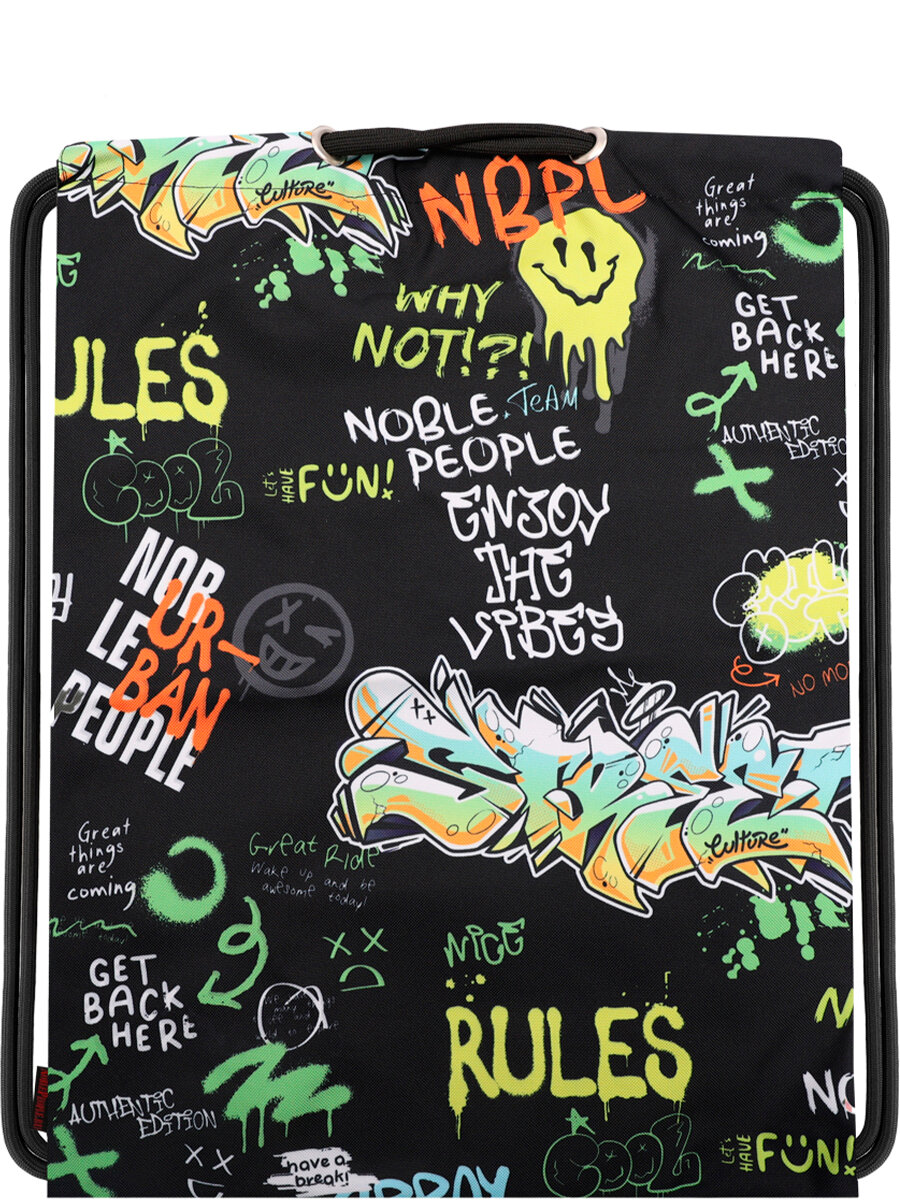 "Culture"
NBPL
Great
things
are
coming
WHY
NOT!?!
GET
BACK
HERE
ULES
NOBLE TeAM
PEOPLE
AUTHENTIC
EDITIO
COOL
Let's
HAVE
FUN!
ENJOY
THE
VIBES
NOB
LE
PEOPLE
UR-
BAN
NO MO
STREET
"Culture"
Great
things
are
coming
Great Ride
Wake up and be
awesome today!
NICE
GET
BACK
HERE
RULES
AUTHENTIC
EDITION
NO
COOL
Let's
HAVE
FUN!
have a
break!